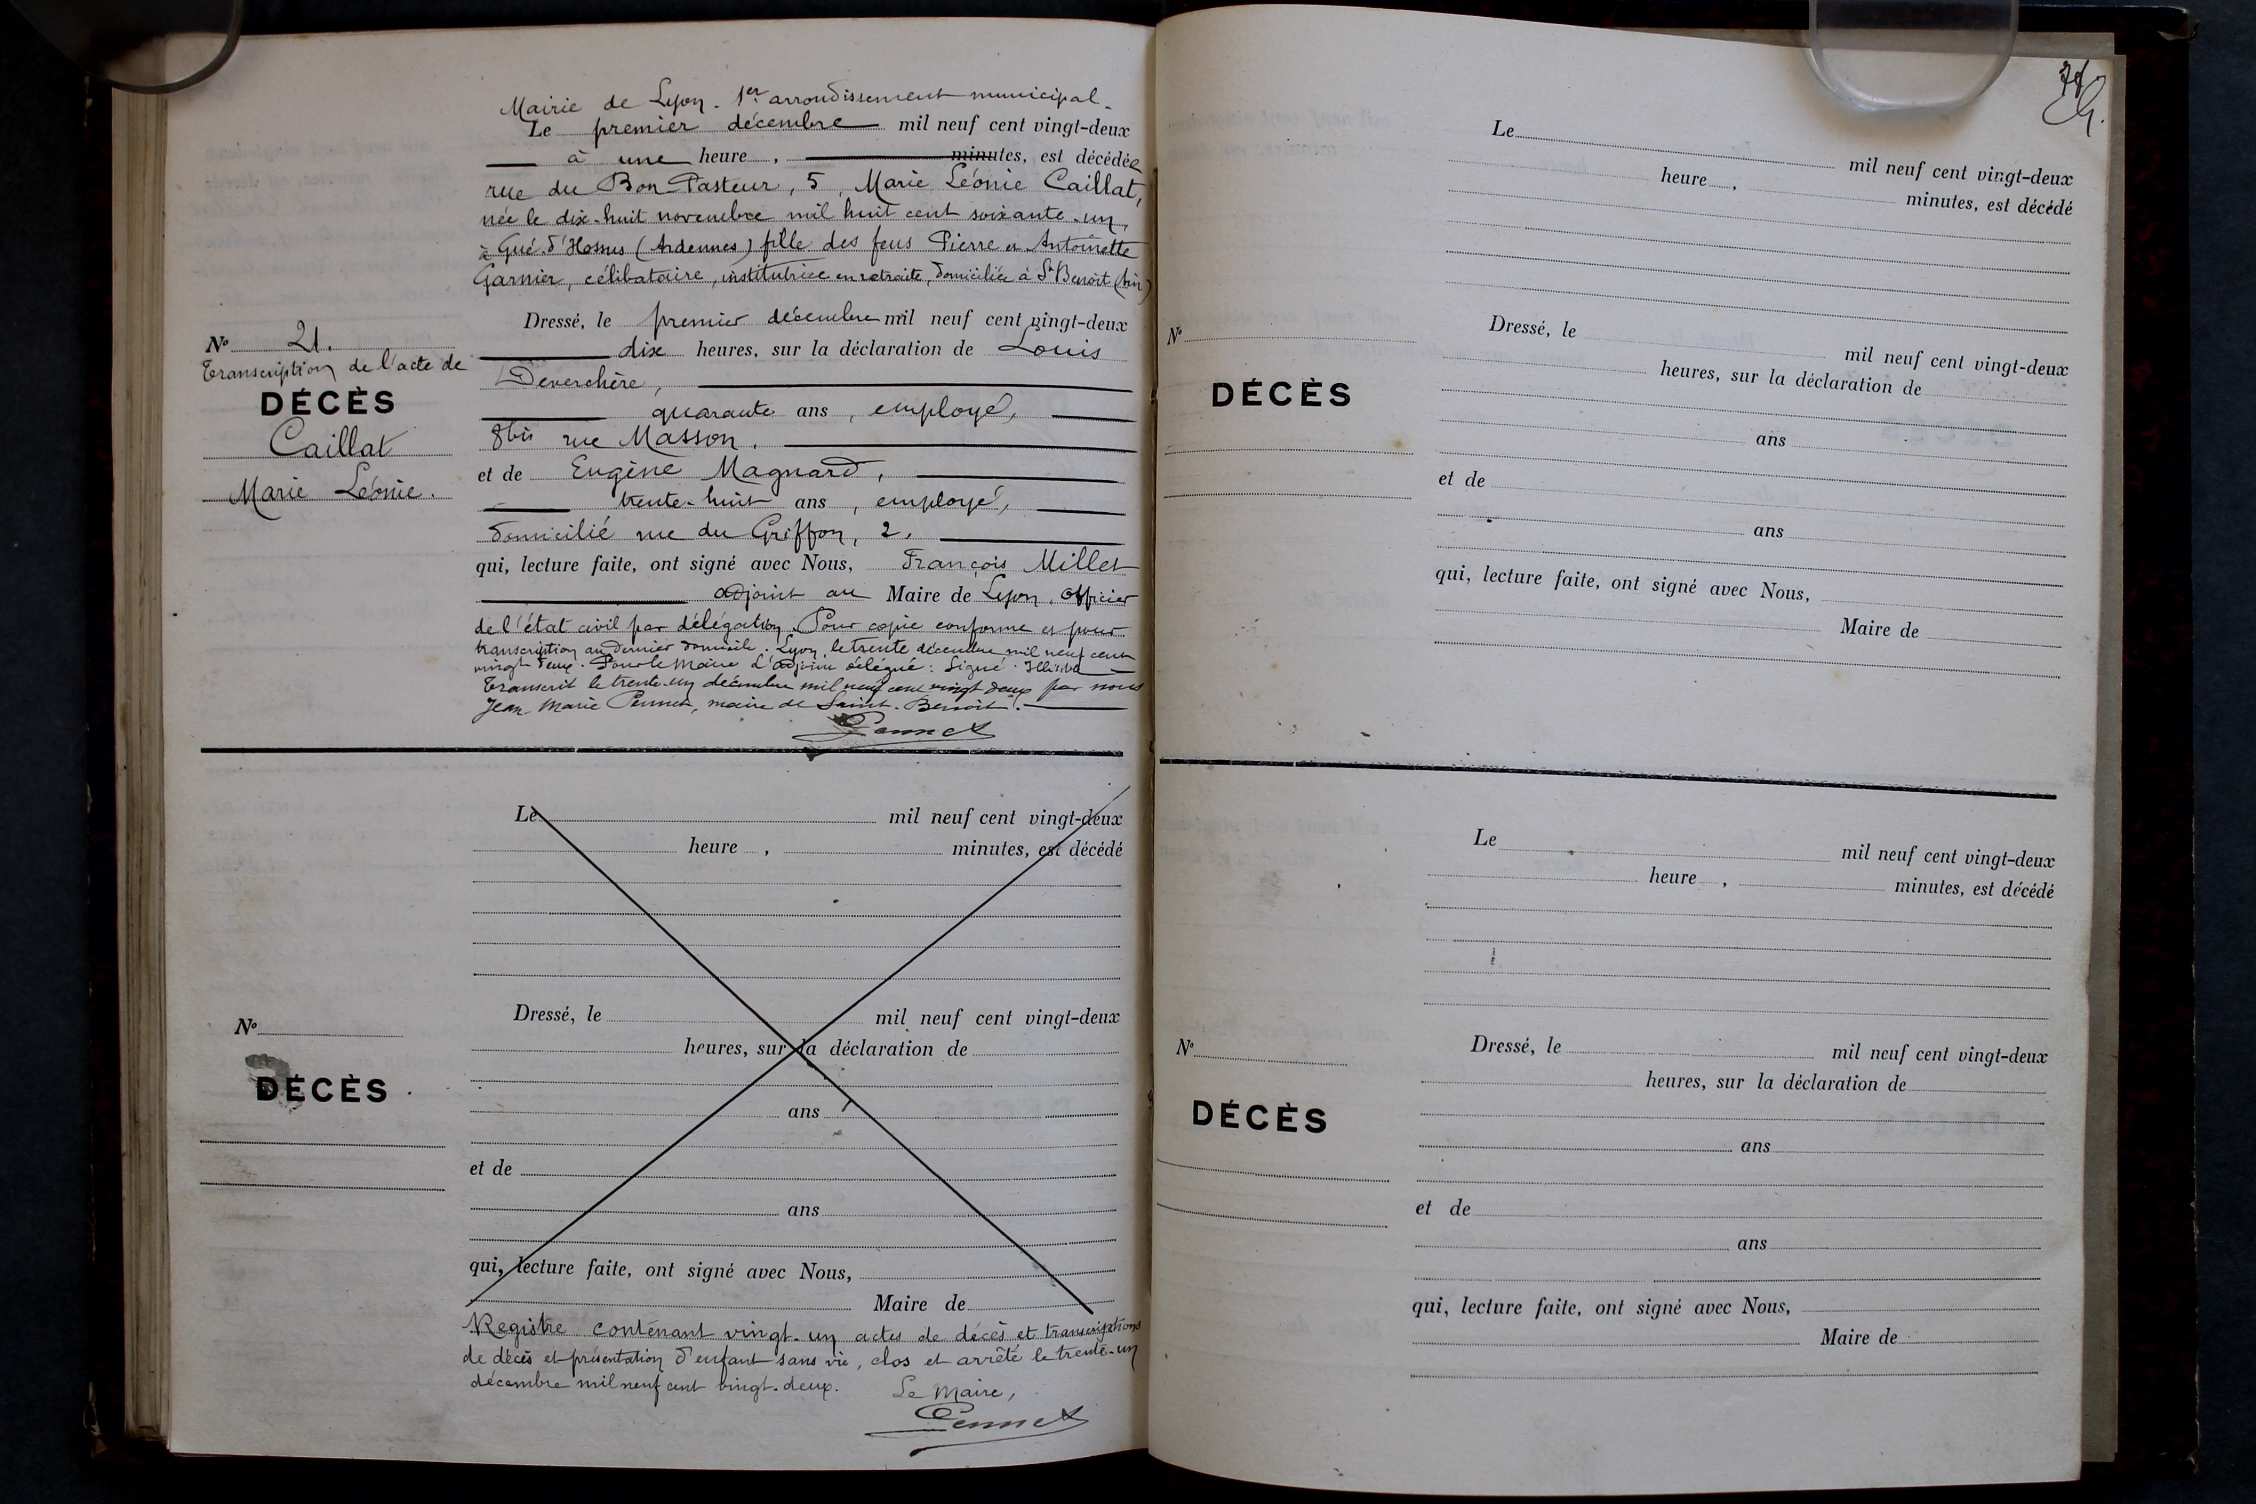 Mairie de Lyon - 1er arrondissement municipal.
Le premier décembre mil neuf cent vingt-deux
à une heure, minutes, est décédée
rue du Bon Pasteur, 5, Marie Léonie Caillat,
née le dix-huit novembre mil huit cent soixante-un,
à Gué-d'Hossus (Ardennes) fille des feus Pierre et Antoinette
Garnier, célibataire, institutrice en retraite, domiciliée à St Benoit (Ain)
Dressé, le premier décembre mil neuf cent vingt-deux
dix heures, sur la déclaration de Louis
Deverchère,
quarante ans, employé,
8bis rue Masson.
et de Eugène Magnard,
trente-huit ans, employé,
domicilié rue du Griffon, 2.
qui, lecture faite, ont signé avec Nous, François Millet
adjoint au Maire de Lyon, officier
de l'état civil par délégation. Pour copie conforme et pour
transcription au dernier domicile. Lyon, le trente décembre mil neuf cent
vingt deux. Pour le Maire L'adjoint délégué : Signé : Illisible
Transcrit le trente-un décembre mil neuf cent vingt deux par nous
Jean Marie Pennet, maire de Saint-Benoit.
Pennet
No 21.
Transcription de l'acte de
DÉCÈS
Caillat
Marie Léonie.
Le mil neuf cent vingt-deux
heure, minutes, est décédé
Dressé, le mil neuf cent vingt-deux
heures, sur la déclaration de
ans
et de
ans
qui, lecture faite, ont signé avec Nous,
Maire de
No
DÉCÈS
Registre contenant vingt-un actes de décès et transcriptions
de décès et présentation d'enfant sans vie, clos et arrêté le trente-un
décembre mil neuf cent vingt-deux. Le Maire,
Pennet
Le mil neuf cent vingt-deux
heure, minutes, est décédé
Dressé, le mil neuf cent vingt-deux
heures, sur la déclaration de
ans
et de
ans
qui, lecture faite, ont signé avec Nous,
Maire de
No
DÉCÈS
Le mil neuf cent vingt-deux
heure, minutes, est décédé
Dressé, le mil neuf cent vingt-deux
heures, sur la déclaration de
ans
et de
ans
qui, lecture faite, ont signé avec Nous,
Maire de
No
DÉCÈS